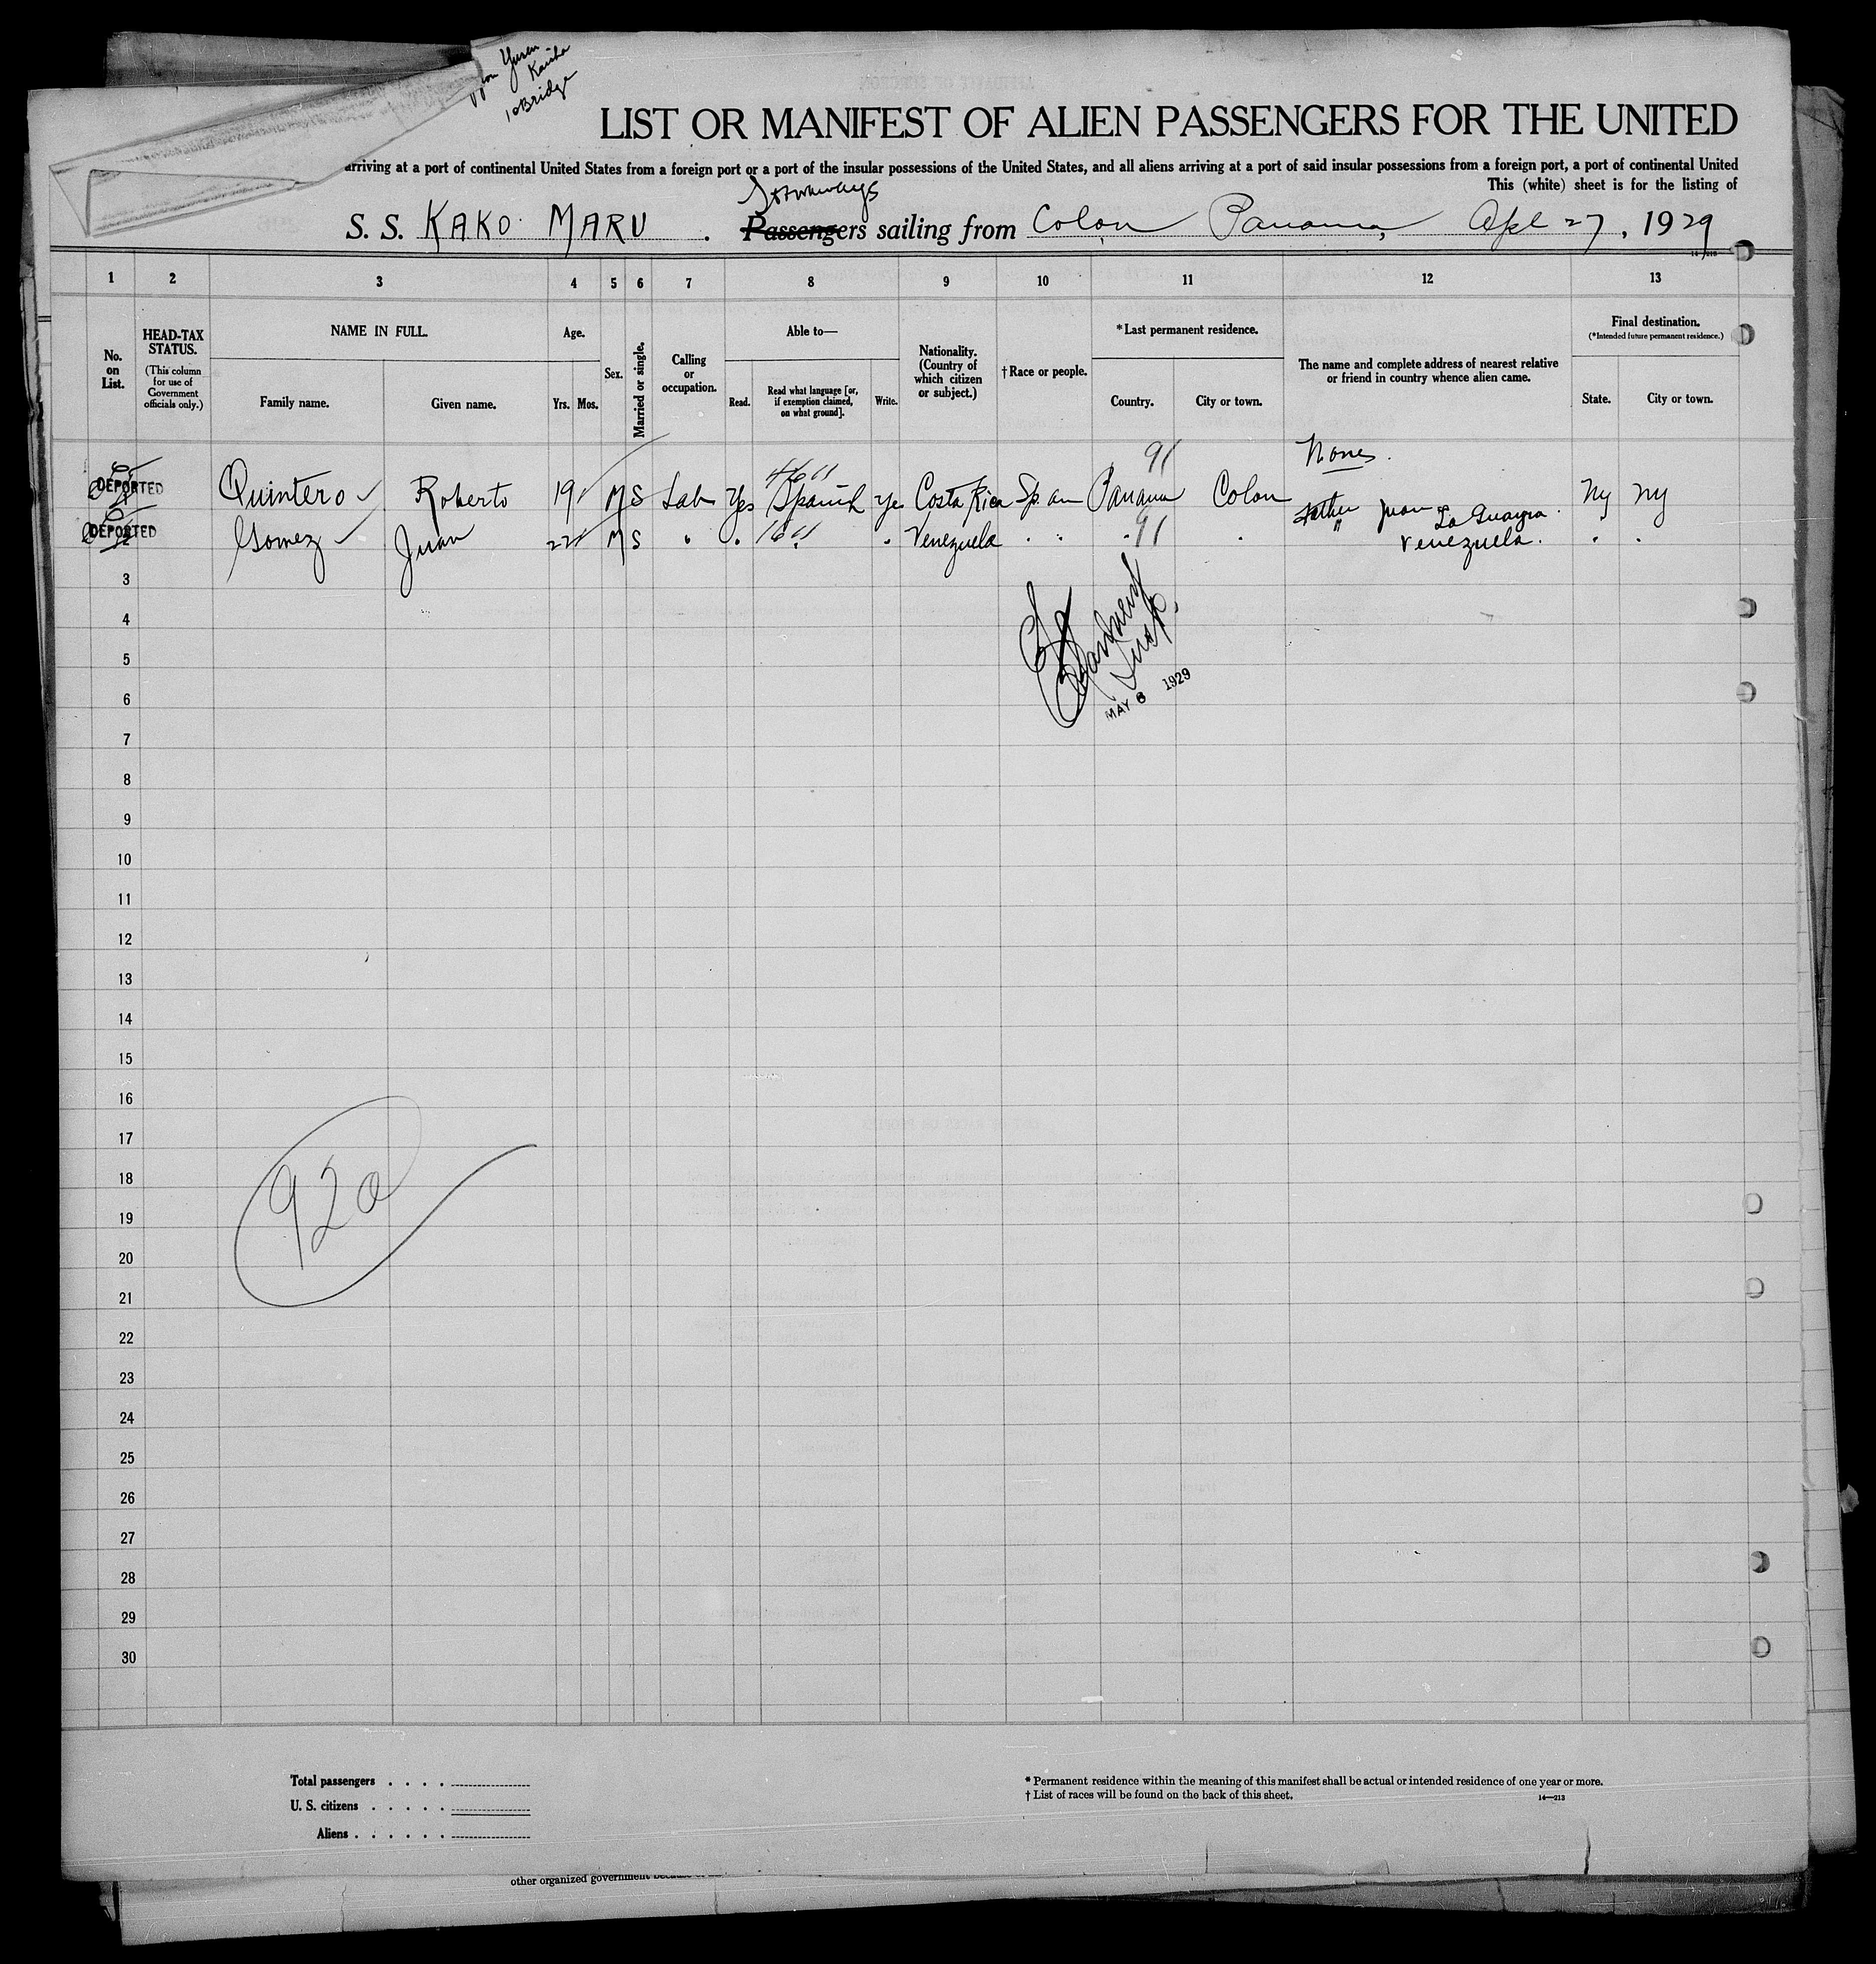 Yusen
Kaisha
10 Bridge
LIST OR MANIFEST OF ALIEN PASSENGERS FOR THE UNITED
arriving at a port of continental United States from a foreign port or a port of the insular possessions of the United States, and all aliens arriving at a port of said insular possessions from a foreign port, a port of continental United
This (white) sheet is for the listing of
Stowaways
S. S. KAKO MARU . Passengers sailing from Colon Panama, Apl 27, 1929
1 2 3 4 5 6 7 8 9 10 11 12 13
No. on List.
HEAD-TAX STATUS.
(This column for use of Government officials only.)
NAME IN FULL.
Family name. Given name.
Age.
Yrs. Mos.
Sex.
Married or single.
Calling or occupation.
Able to—
Read. Read what language [or, if exemption claimed, on what ground]. Write.
Nationality. (Country of which citizen or subject.)
† Race or people.
* Last permanent residence.
Country. City or town.
The name and complete address of nearest relative or friend in country whence alien came.
Final destination.
(*Intended future permanent residence.)
State. City or town.
91 None.
DEPORTED Quintero Roberto 19 M S Lab Yes Spanish Ye Costa Rica Sp. am Panama Colon NY NY
Father Juan La Guayra.
DEPORTED 2 Gomez Juan 22 M S " " " " Venezuela " " " 91 " " Venezuela. " "
3
4
5
6
MAY 6 1929
7
8
9
10
11
12
13
14
15
16
17
18
19
20
21
22
23
24
25
26
27
28
29
30
920
Total passengers . . . .
U. S. citizens . . . . .
Aliens . . . . . .
* Permanent residence within the meaning of this manifest shall be actual or intended residence of one year or more.
† List of races will be found on the back of this sheet.
14—213
other organized government because of